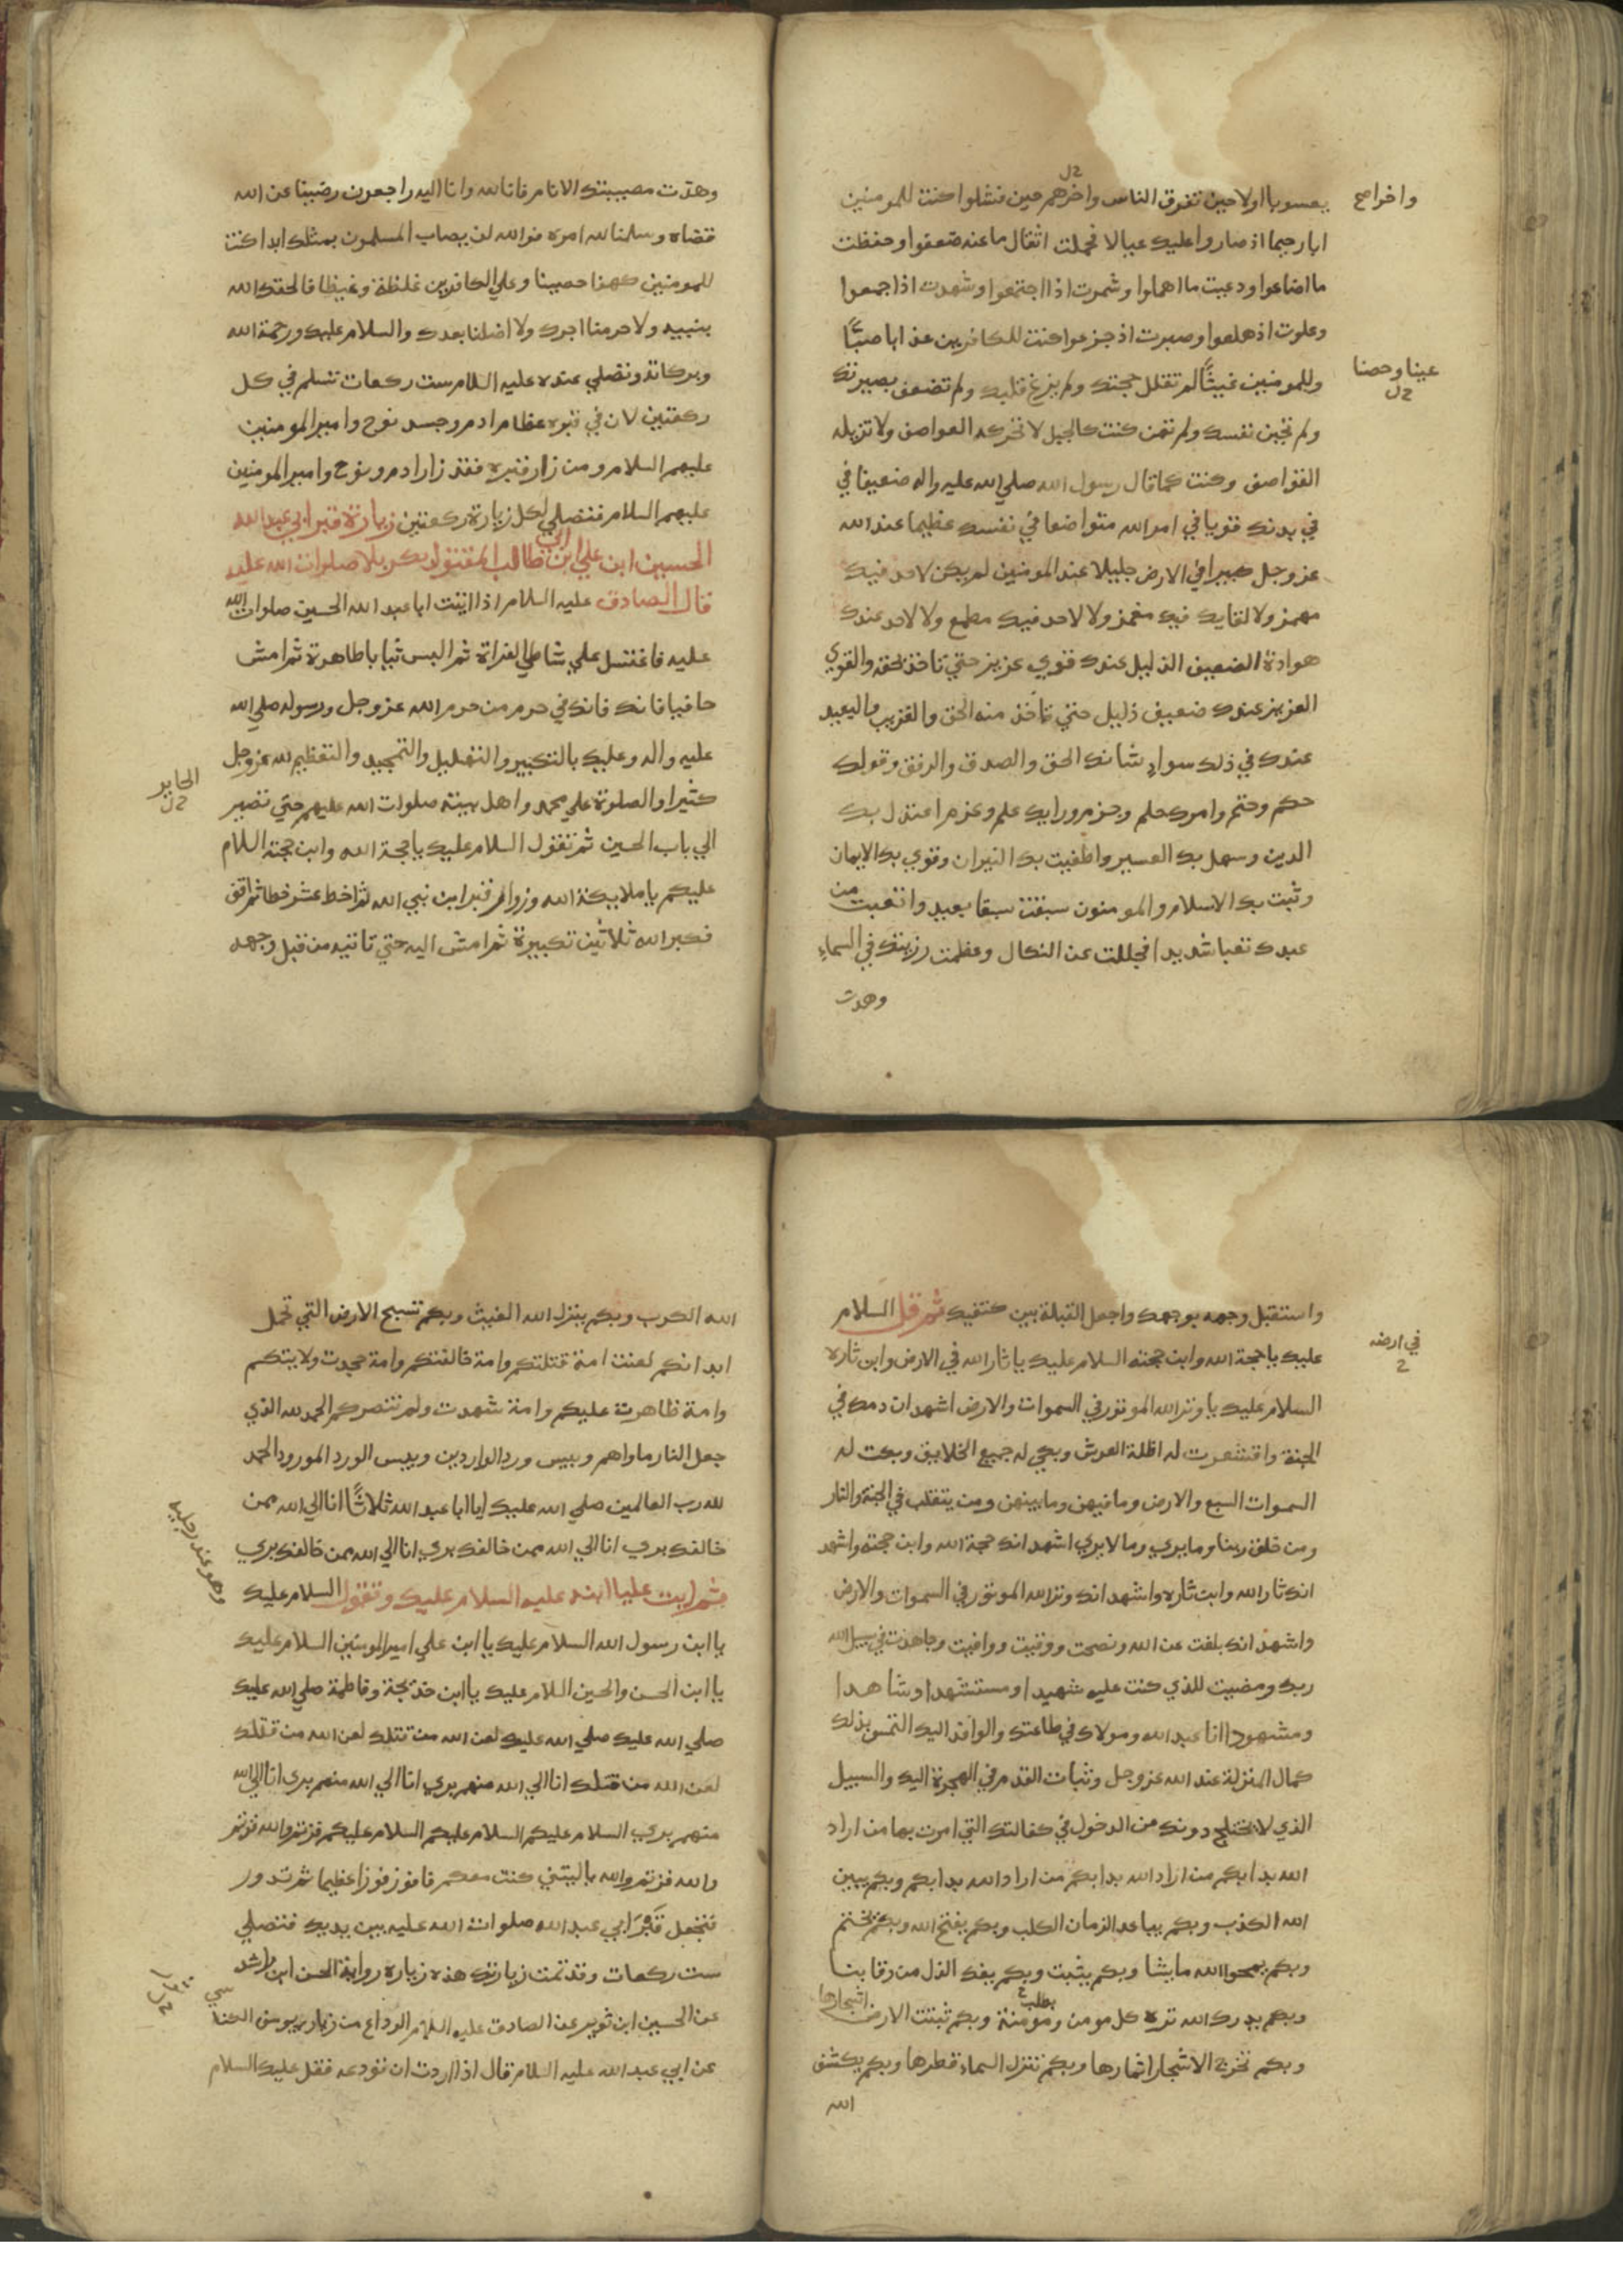 يعسوبا اولا حين تفرق الناس واخرهم حين فشلوا كنت للمومنين
واخرا صح
ابا رحيما اذ صاروا عليك عيالا فحملت اثقال ما عنه ضعفوا وحفظت
ما اضاعوا ورعيت ما اهملوا وشمرت اذا اجتمعوا وشهدت اذا جمعوا
وعلوت اذ هلعوا وصبرت اذ جزعوا كنت للكافرين عذابا صبّاً
وللمومنين غيثاً لم تفلل حجتك ولم يزغ قلبك ولم تضعف بصيرتك
عينا وحصنا
ولم تجبن نفسك ولم تهن كنت كالجبل لا تحركه العواصف ولا تزيله
القواصف وكنت كما قال رسول الله صلي الله عليه واله ضعيفا في
في بدنك قويا في امر الله متواضعا في نفسك عظيما عند الله
عز وجل كبيرا في الارض جليلا عند المومنين لم يكن لاحد فيك
مهمز ولا لقايل فيك مغمز ولا لاحد فيك مطمع ولا لاحد عندك
هوادة الضعيف الذليل عندك قوي عزيز حتي تاخذ بحقه والقوي
العزيز عندك ضعيف ذليل حتي تاخذ منه الحق والقريب والبعيد
عندك في ذلك سواء شانك الحق والصدق والرفق وقولك
حكم وحتم وامرك حلم وجزم ورايك علم وعزم اعتدل بك
الدين وسهل بك العسير واطفيت بك النيران وقوي بك الايمان
وثبت بك الاسلام والمومنون سبقت سبقا بعيد واتعبت من
عبدك تعبا شديدا فجللت عن النكال وعظمت رزيتك في السماء
وهدت
وهدّت مصيبتك الانام فانا لله وانا اليه راجعون رضينا عن الله
قضاه وسلمنا لله امره فوالله لن يصاب المسلمون بمثلك ابدا كنت
للمومنين كهفا حصينا وعلي الكافرين غلظة وغيظا فالحقك الله
بنبيه ولا حرمنا اجرك ولا اضلنا بعدك والسلام عليك ورحمة الله
وبركاته وتصلي عنده عليه السلام ست ركعات تسلم في كل
ركعتين لان في قبره عظام ادم وجسد نوح وامير المومنين
عليهم السلام ومن زار قبره فقد زار ادم ونوح وامير المومنين
عليهم السلام فتصلي لكل زيارة ركعتين زيارة قبر ابي عبد الله
الحسين ابن علي ابن ابي طالب المقتول بكربلا صلوات الله عليه
قال الصادق عليه السلام اذا اتيت ابا عبد الله الحسين صلوات الله
عليه فاغتسل علي شاطي الفراة ثم البس ثيابا طاهرة ثم امش
حافيا فانك فانك في حرم من حرم الله عز وجل ورسوله صلي الله
عليه واله وعليك بالتكبير والتهليل والتمجيد والتعظيم لله عز وجل
كثيرا والصلوة علي محمد واهل بيته صلوات الله عليهم حتي تصير
الحاير
الي باب الحسين ثم تقول السلام عليك يا حجة الله وابن حجته السلام
عليكم يا ملايكة الله وزوار قبر ابن نبي الله ثم اخط عشر خطا ثم قف
فكبر الله ثلاثين تكبيرة ثم امش اليه حتي تاتيه من قبل وجهه
واستقبل وجهه بوجهك واجعل القبلة بين كتفيك ثم قل السلام
عليك يا حجة الله وابن حجته السلام عليك يا ثار الله في الارض وابن ثاره
في ارضه
السلام عليك يا وتر الله الموتور في السموات والارض اشهد ان دمك في
الجنة واقشعرت له اظلة العرش وبكي له جميع الخلايق وبكت له
السموات السبع والارض وما فيهن وما بينهن ومن يتقلب في الجنة والنار
ومن خلق ربنا وما يري وما لا يري اشهد انك حجة الله وابن حجته واشهد
انك ثار الله وابن ثاره واشهد انك وتر الله الموتور في السموات والارض
واشهد انك بلغت عن الله ونصحت ووفيت ووافيت وجاهدت في سبيل الله
ربك ومضيت للذي كنت عليه شهيدا ومستشهدا وشاهدا
ومشهودا انا عبد الله ومولاك في طاعتك والوافد اليك التمس بذلك
كمال المنزلة عند الله عز وجل وثبات القدم في الهجرة اليك والسبيل
الذي لا يختلج دونك من الدخول في كفالتك التي امرت بها من اراد
الله بدا بكم من اراد الله بدا بكم من اراد الله بدا بكم وبكم يبين
الله الكذب وبكم يباعد الزمان الكلب وبكم يفتح الله وبكم يختم
وبكم يمحوا الله ما يشا وبكم يثبت وبكم يفك الذل من رقابنا
وبكم يدرك الله ترة كل مومن ومومنة يطلب وبكم تنبت الارض اشجارها
وبكم تخرج الاشجار اثمارها وبكم تنزل السماء قطرها وبكم يكشف
الله
الله الكرب وبكم ينزل الله الغيث وبكم تسبح الارض التي تحمل
ابدانكم لعنت امة قتلتكم وامة خالفتكم وامة جحدت ولايتكم
وامة ظاهرت عليكم وامة شهدت ولم تنصركم الحمد لله الذي
جعل النار ماواهم وبيس ورد الواردين وبيس الورد المورود الحمد
لله رب العالمين صلي الله عليك يا ابا عبد الله ثلاثاً انا الي الله ممن
خالفك بري انا الي الله ممن خالفك بري انا الي الله ممن خالفك بري
ثم ايت عليا ابنه عليه السلام عليك وتقول السلام عليك
وهو عند رجليه
يا ابن رسول الله السلام عليك يا ابن علي امير المومنين السلام عليك
يا ابن الحسن والحسين السلام عليك يا ابن خديجة وفاطمة صلي الله عليك
صلي الله عليك صلي الله عليك لعن الله من قتلك لعن الله من قتلك
لعن الله من قتلك انا الي الله منهم بري انا الي الله منهم بري انا الي الله
منهم بري السلام عليكم السلام عليكم السلام عليكم فزتم والله فزتم
والله فزتم والله يا ليتني كنت معكم فافوز فوزا عظيما ثم تدور
فتجعل قبر ابي عبد الله صلوات الله عليه بين يديك فتصلي
ست ركعات وقد تمت زيارتك هذه زيارة رواية الحسن ابن راشد
عن الحسين ابن ثوير عن الصادق عليه السلام الوداع من زيارة يوسف الكناسي
عن ابي عبد الله عليه السلام قال اذا اردت ان تودعه فقل عليك السلام